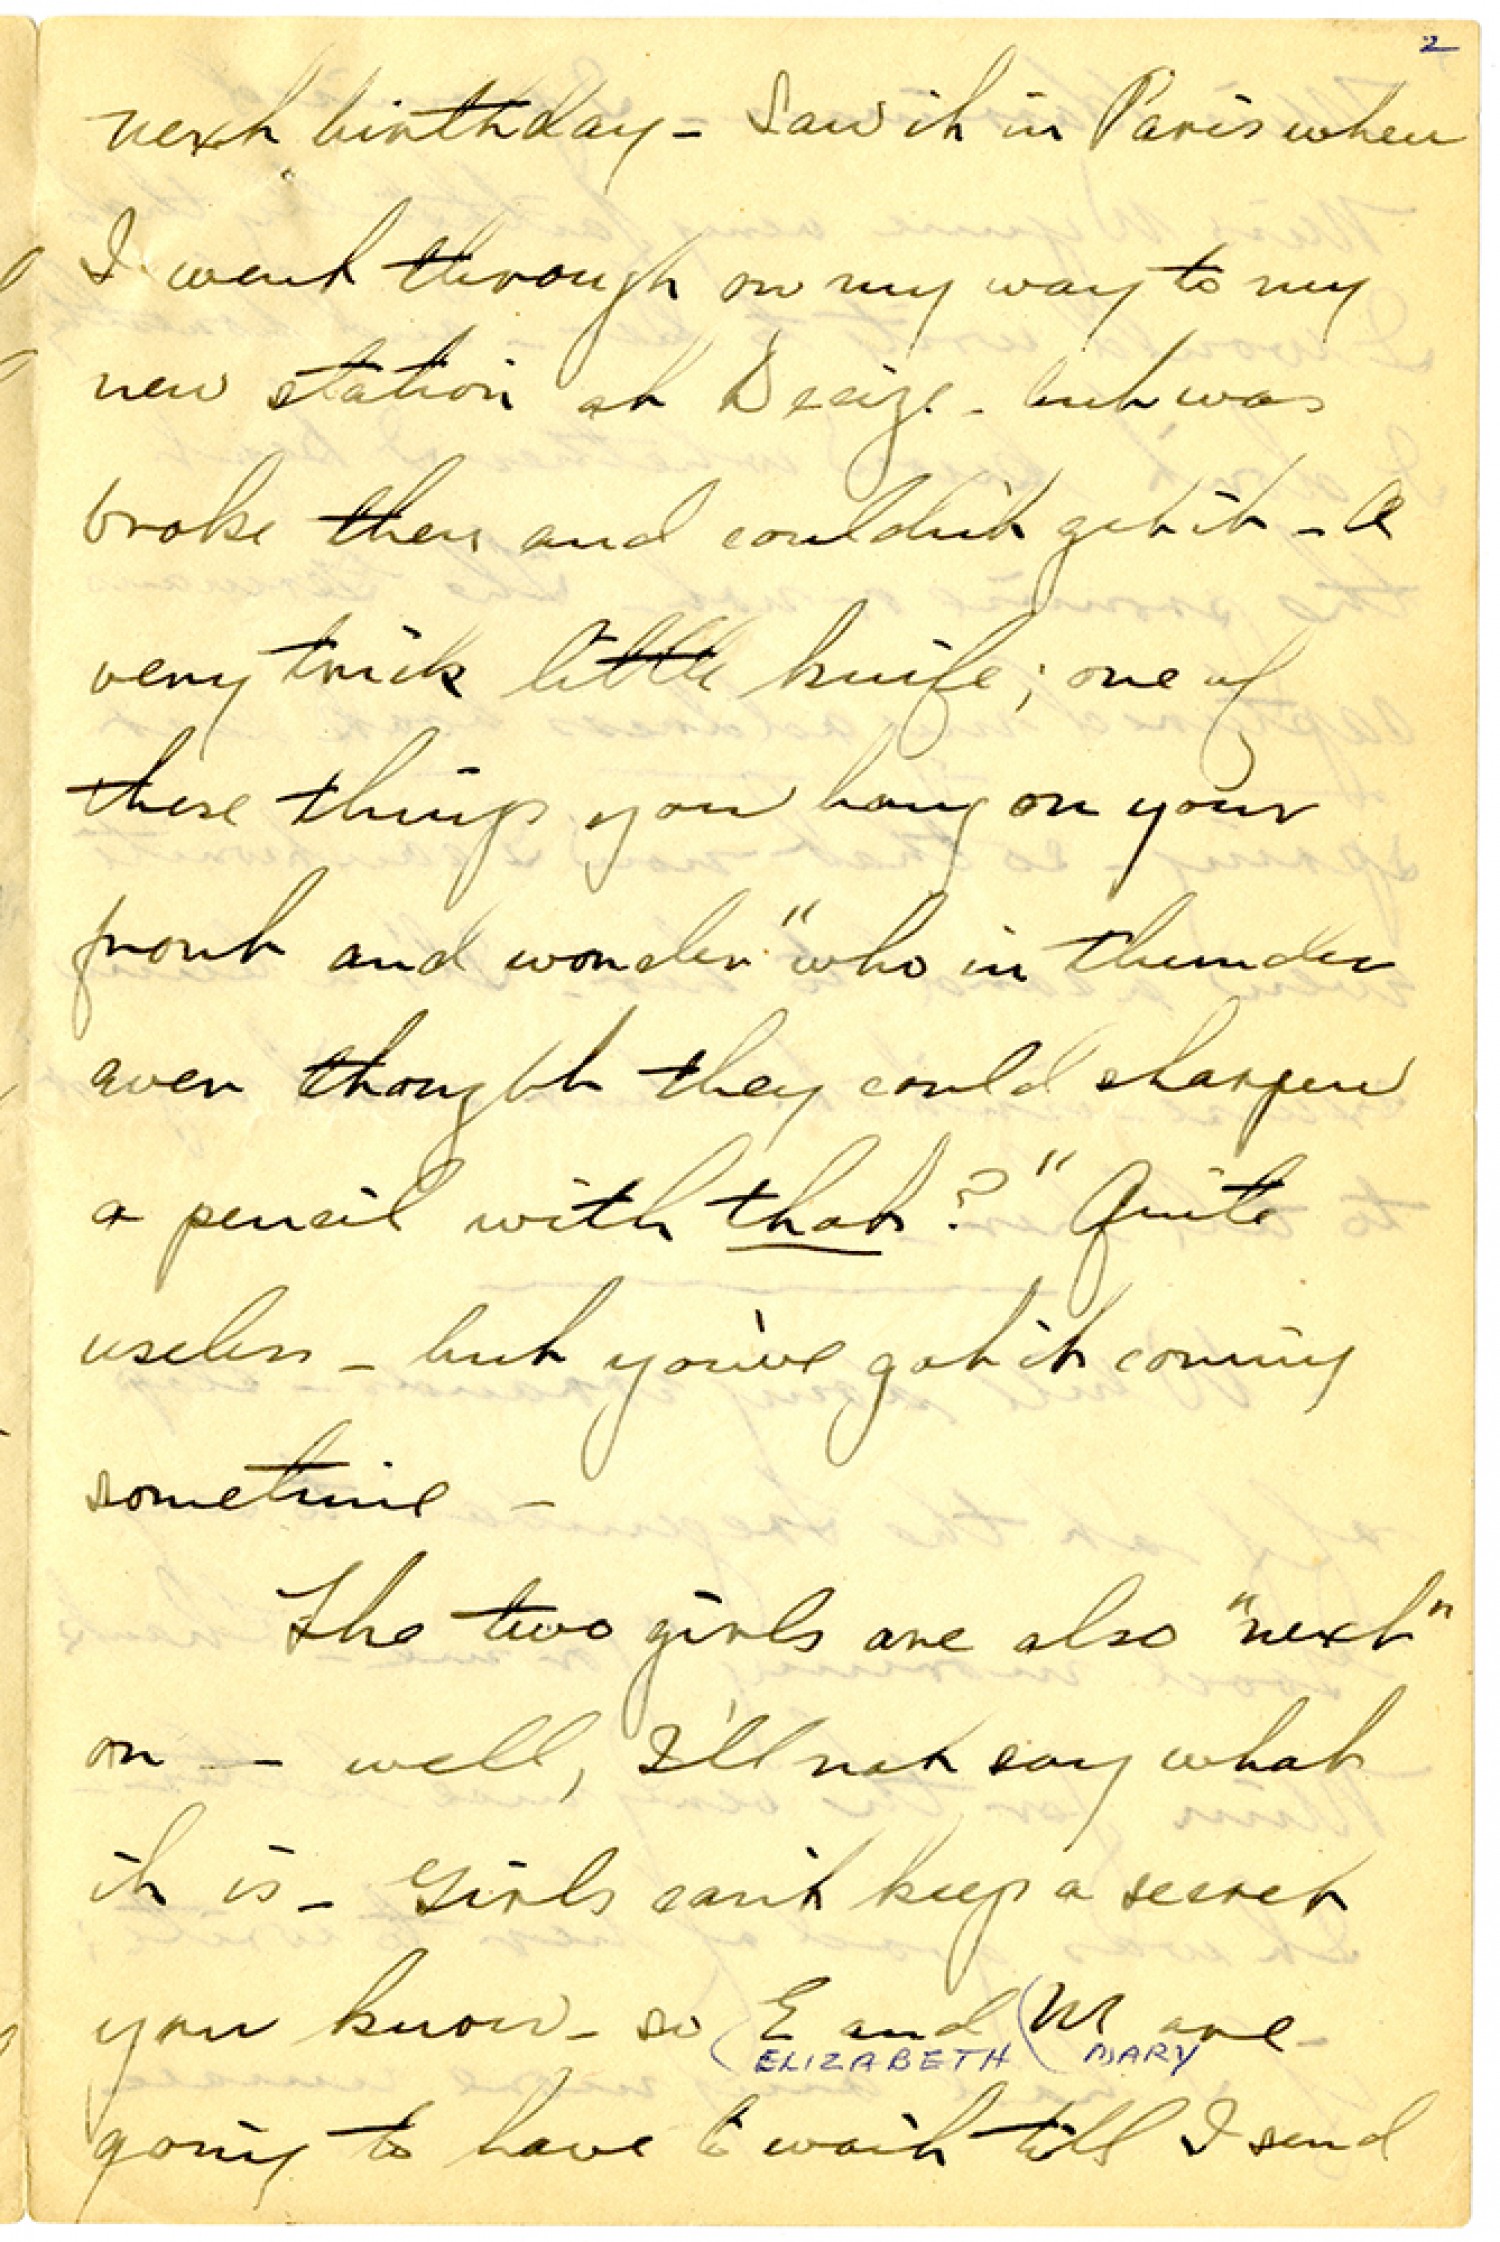 2
next birthday - Saw it in Paris when
I went through on my way to my
new station at Decize - but was
broke then and couldn't get it - A
very trick little knife; one of
these things you hang on your
front and wonder "who in thunder
ever thought they could sharpen
a pencil with that?" Quite
useless - but you've got it coming
sometime -
The two girls are also "next"
on — well, I'll not say what
it is - Girls can't keep a secret
you know - so E and M are -
ELIZABETH MARY
going to have to wait till I send